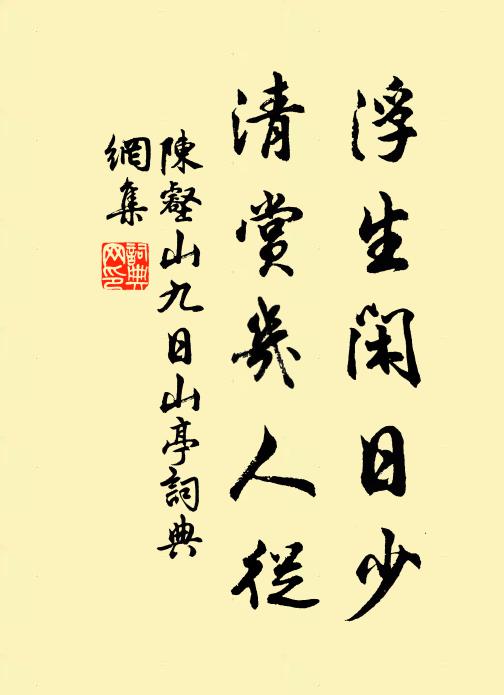 浮生閑日少
清賞幾人從
陳壑山九日山亭詞典
網集
詞典網印